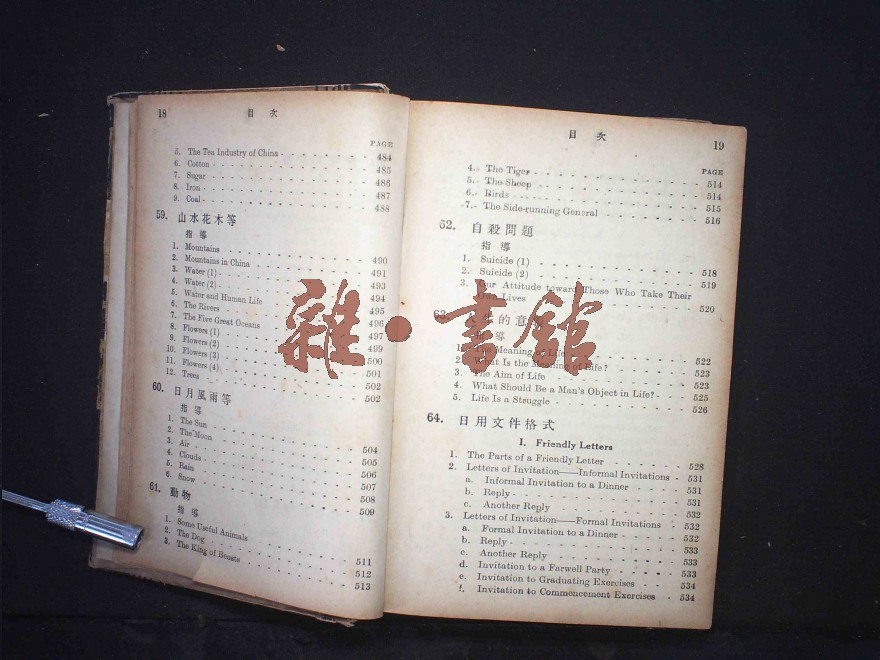 18 目 次
PAGE
5. The Tea Industry of China 484
6. Cotton 485
7. Sugar 486
8. Iron 487
9. Coal 488
59. 山水花木等
指導
1. Mountains 490
2. Mountains in China 491
3. Water (1) 493
4. Water (2) 494
5. Water and Human Life 495
6. The Rivers 496
7. The Five Great Oceans 497
8. Flowers (1) 499
9. Flowers (2) 500
10. Flowers (3) 501
11. Flowers (4) 502
12. Trees 502
60. 日月風雨等
指導
1. The Sun 504
2. The Moon 505
3. Air 506
4. Clouds 507
5. Rain 508
6. Snow 509
61. 動物
指導
1. Some Useful Animals 511
2. The Dog 512
3. The King of Beasts 513
目 次 19
PAGE
4. The Tiger 514
5. The Sheep 514
6. Birds 515
7. The Side-running General 516
62. 自殺問題
指導
1. Suicide (1) 518
2. Suicide (2) 519
3. Our Attitude toward Those Who Take Their
Own Lives 520
63. 的意
導
1. The Meaning of Life 522
2. What Is the Meaning of Life? 523
3. The Aim of Life 523
4. What Should Be a Man's Object in Life? 525
5. Life Is a Struggle 526
64. 日用文件格式
I. Friendly Letters
1. The Parts of a Friendly Letter 528
2. Letters of Invitation——Informal Invitations 531
a. Informal Invitation to a Dinner 531
b. Reply 531
c. Another Reply 532
3. Letters of Invitation——Formal Invitations 532
a. Formal Invitation to a Dinner 532
b. Reply 533
c. Another Reply 533
d. Invitation to a Farwell Party 533
e. Invitation to Graduating Exercises 534
f. Invitation to Commencement Exercises 534
雜·書館